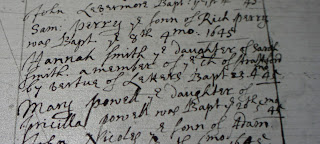 John Levermore Bapt
Sam: Perry ye sonn of Rich perry
was Bapt. ye 8th 4 mo. 1645
Hannah Smith ye daughter of Sarah
Smith. a member of ye ch of
by vertue of Letters Bapt 22. 4. 45
Mary powell ye daughter of
priscilla powell was Bapt ye 28 4 mo 45
John Nicoles ye sonn of Adam